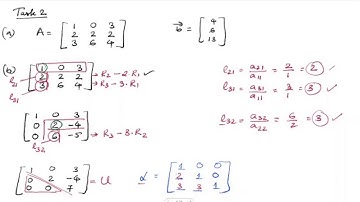 Task 2
(a) A = [ 1 0 3
2 2 2
3 6 4 ]
b = [ 4
6
13 ]
(b) [ 1 0 3
2 2 2 → R2 - 2·R1 ✓
3 6 4 ] → R3 - 3·R1
l21
l31
l21 = a21/a11 = 2/1 = 2 ✓
l31 = a31/a11 = 3/1 = 3 ✓
[ 1 0 3
0 2 -4
0 6 -5 ] → R3 - 3·R2
l32
l32 = a32/a22 = 6/2 = 3 ✓
[ 1 0 3
0 2 -4
0 0 7 ] = U
L = [ 1 0 0
2 1 0
3 3 1 ]